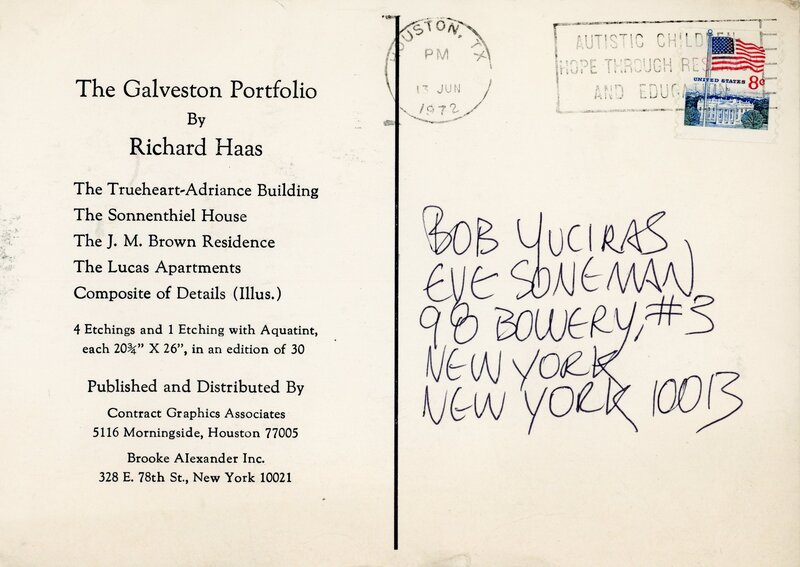 The Galveston Portfolio
By
Richard Haas
The Trueheart-Adriance Building
The Sonnenthiel House
The J. M. Brown Residence
The Lucas Apartments
Composite of Details (Illus.)
4 Etchings and 1 Etching with Aquatint,
each 20¾" X 26", in an edition of 30
Published and Distributed By
Contract Graphics Associates
5116 Morningside, Houston 77005
Brooke Alexander Inc.
328 E. 78th St., New York 10021
HOUSTON, TX
PM
13 JUN
1972
AUTISTIC CHILDREN
HOPE THROUGH RES
AND EDUCATION
UNITED STATES 8c
BOB YUCIRAS
EVE SONEMAN
98 BOWERY, #3
NEW YORK
NEW YORK 10013